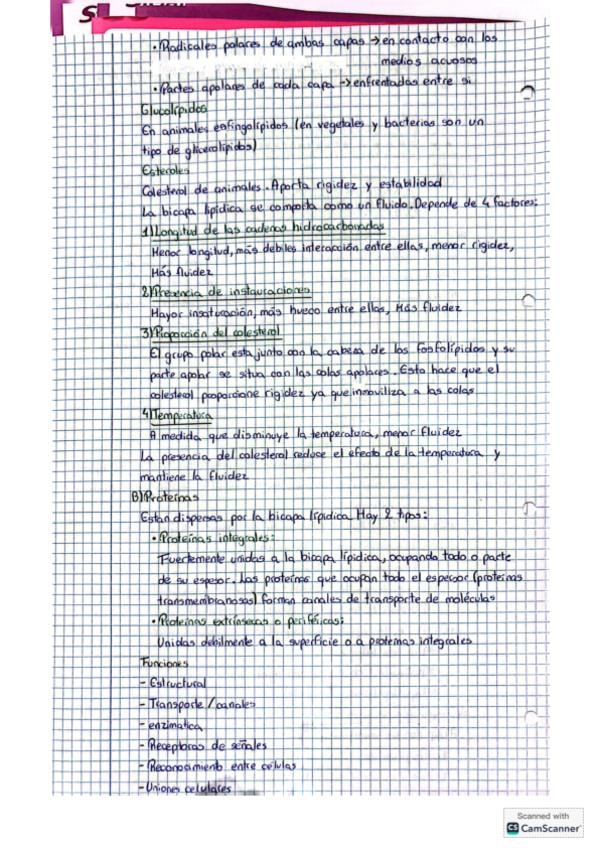 • Radicales polares de ambas capas → en contacto con los
medios acuosos
• Partes apolares de cada capa → enfrentadas entre si
Glucolípidos
En animales esfingolípidos (en vegetales y bacterias son un
tipo de glicerolípidos)
Esteroles
Colesterol de animales. Aporta rigidez y estabilidad
La bicapa lipídica se comporta como un fluido. Depende de 4 factores:
1) Longitud de las cadenas hidrocarbonadas
Menor longitud, más debiles interacción entre ellas, menor rigidez,
Más fluidez
2) Presencia de instauraciones
Mayor insaturación, más hueco entre ellas, Más fluidez
3) Proporción del colesterol
El grupo polar esta junto con la cabeza de los fosfolípidos y su
parte apolar se situa con las colas apolares. Esto hace que el
colesterol proporcione rigidez ya que inmoviliza a las colas
4) Temperatura
A medida que disminuye la temperatura, menor fluidez
La presencia del colesterol reduce el efecto de la temperatura y
mantiene la fluidez
B) Proteínas
Estan dispersas por la bicapa lípidica. Hay 2 tipos:
• Proteínas integrales:
Fuertemente unidas a la bicapa lípidica, ocupando todo o parte
de su espesor. Las proteínas que ocupan todo el espesor (proteínas
transmembranosas) forman canales de transporte de moléculas
• Proteínas extrínsecas o periféricas:
Unidas debilmente a la superficie o a proteínas integrales
Funciones
- Estructural
- Transporte / canales
- enzimatica
- Receptoras de señales
- Reconocimiento entre células
- Uniones celulares
Scanned with
CS CamScanner